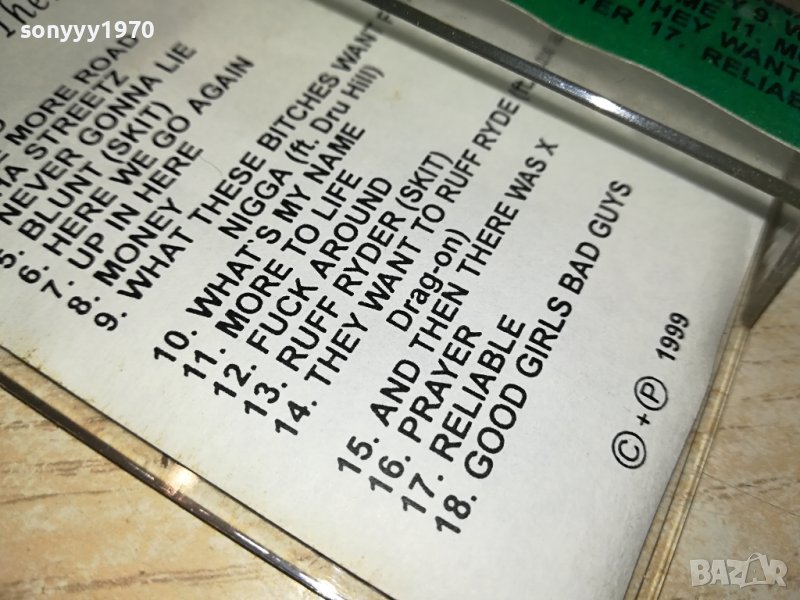 sonyyy1970
The
MORE ROAD
HA STREETZ
NEVER GONNA LIE
5. BLUNT (SKIT)
6. HERE WE GO AGAIN
7. UP IN HERE
8. MONEY
9. WHAT THESE BITCHES WANT F
NIGGA (ft. Dru Hill)
10. WHAT`S MY NAME
11. MORE TO LIFE
12. FUCK AROUND
13. RUFF RYDER (SKIT)
14. THEY WANT TO RUFF RYDE (ft.
Drag-on)
15. AND THEN THERE WAS X
16. PRAYER
17. RELIABLE
18. GOOD GIRLS BAD GUYS
© + ℗ 1999
9. W
11. M
THEY WANT
17. RELIABL
BAZAR